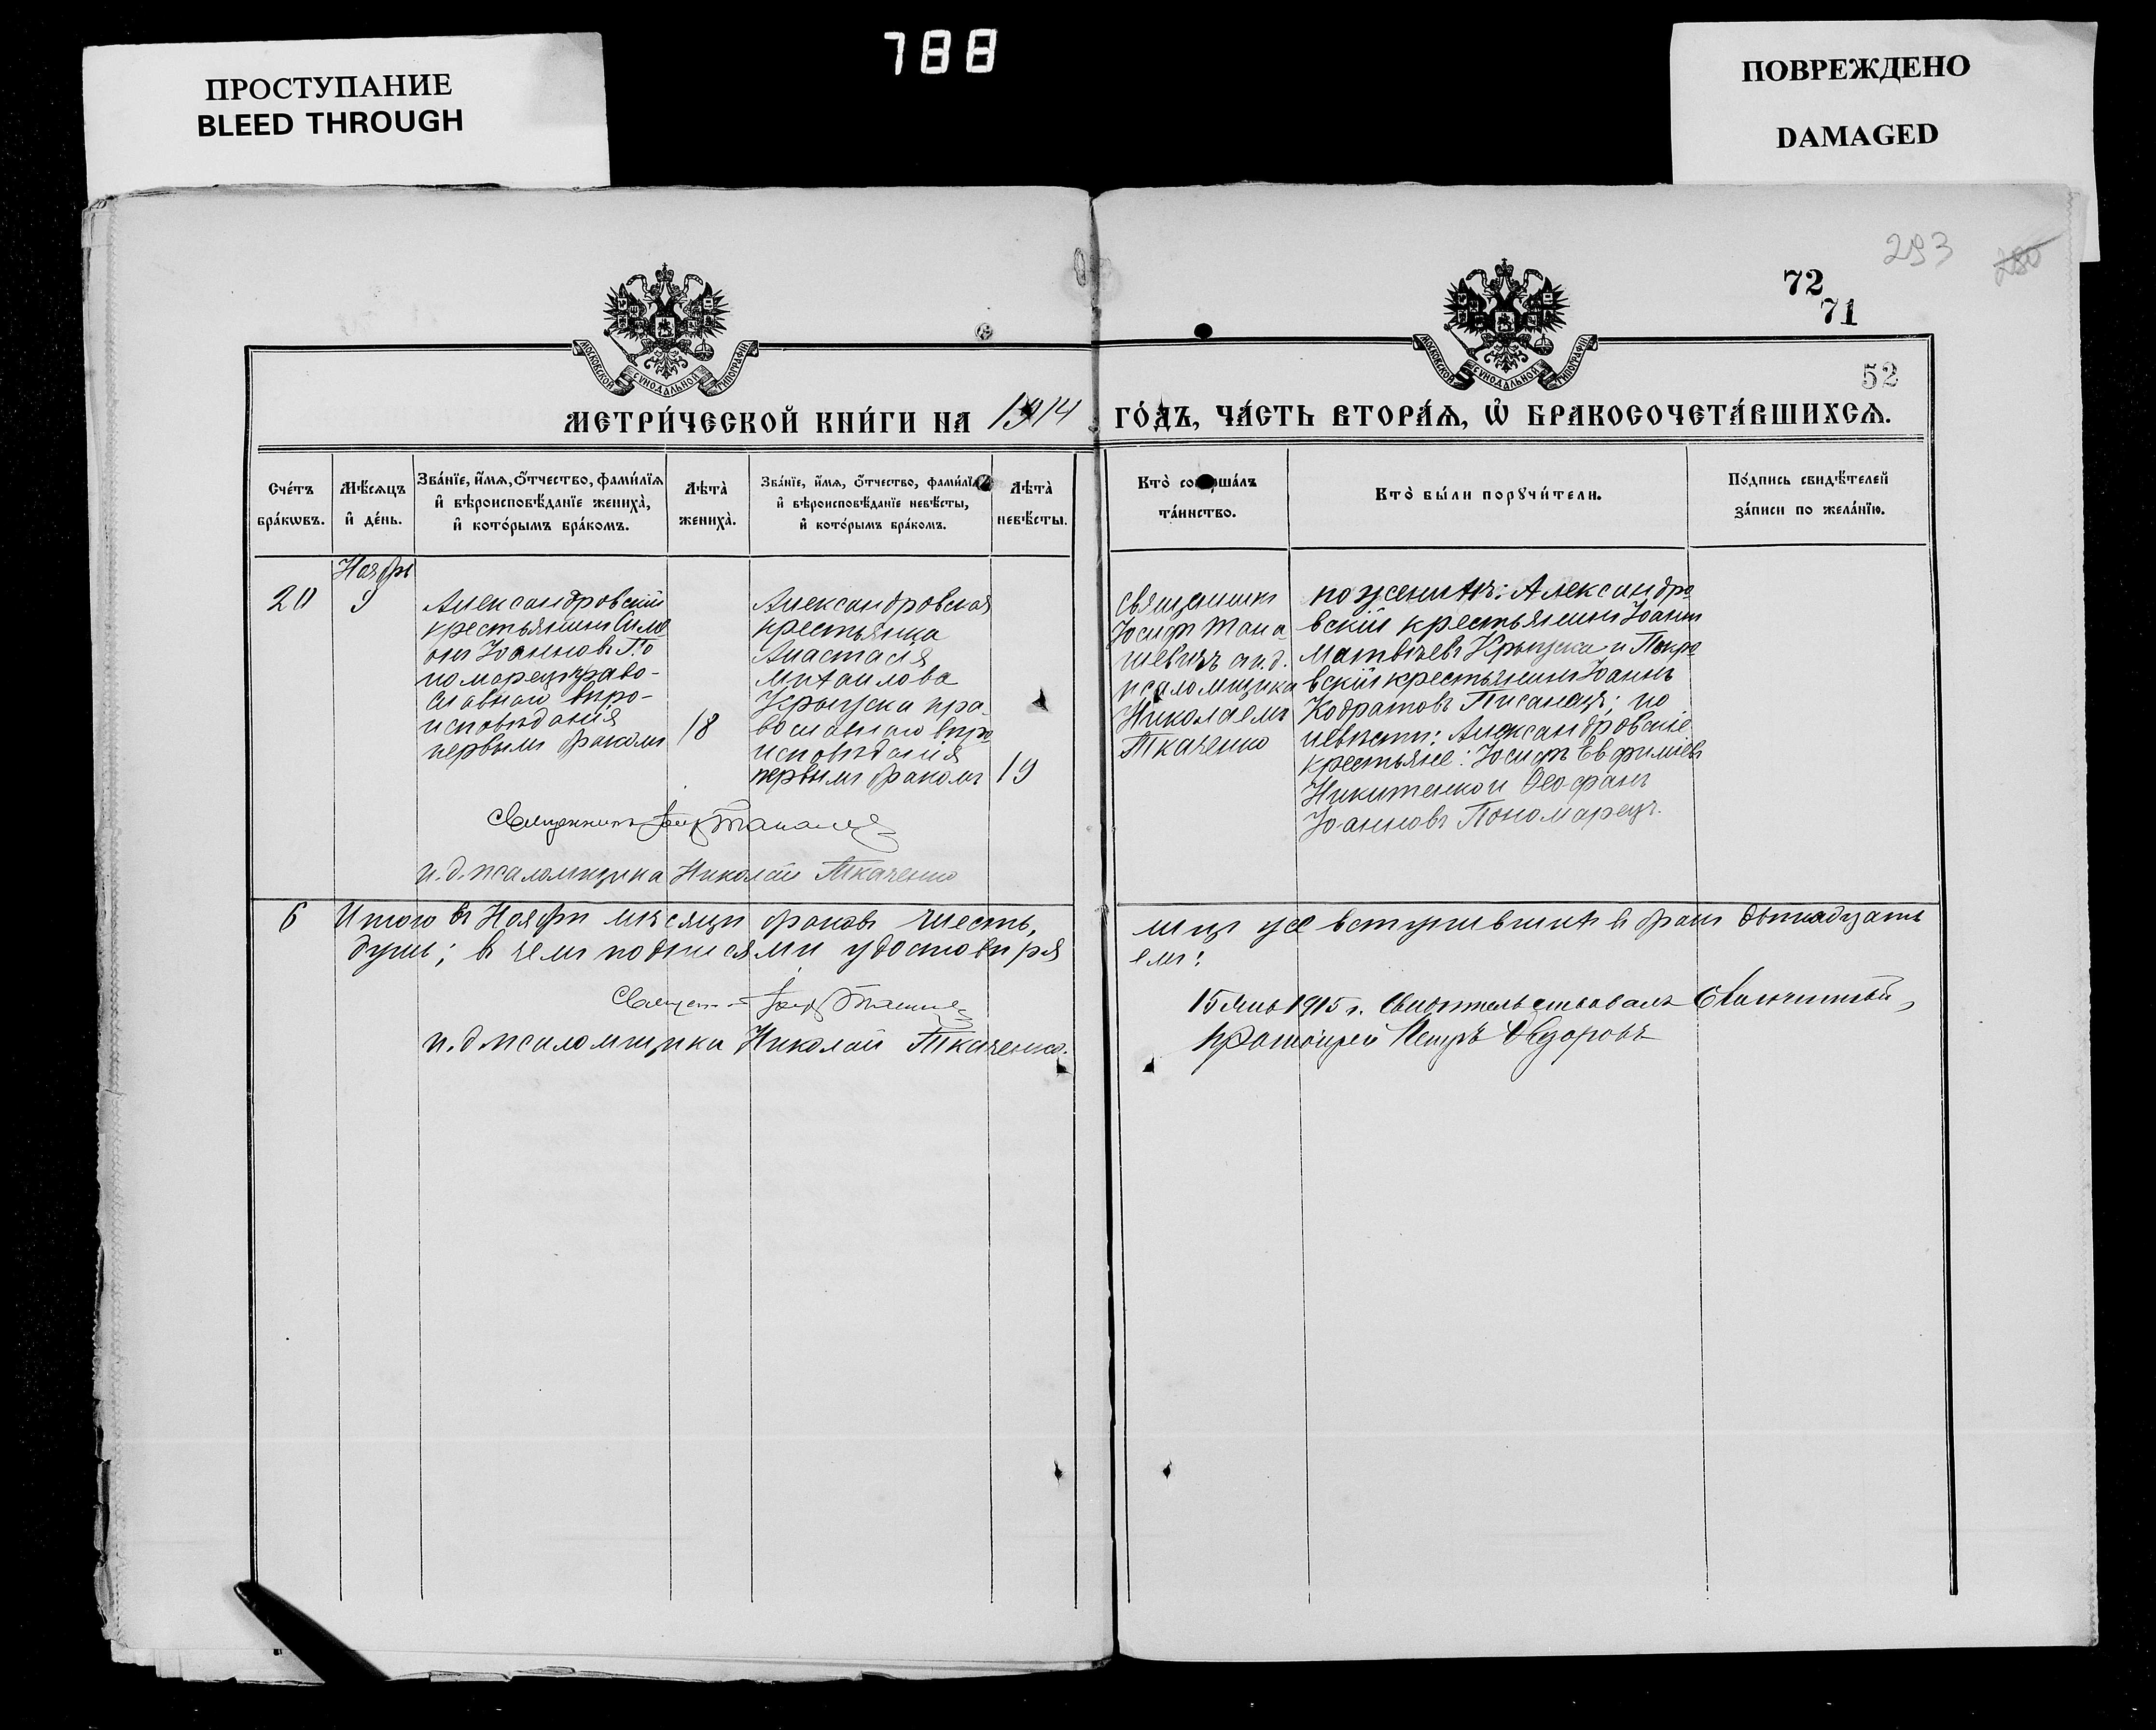 788
ПРОСТУПАНИЕ
BLEED THROUGH
ПОВРЕЖДЕНО
DAMAGED
293
72
71
52
МОСКОВСКОЙ СУНОДАЛЬНОЙ ТИПОГРАФІИ
МОСКОВСКОЙ СУНОДАЛЬНОЙ ТИПОГРАФІИ
МЕТРИ́ЧЕСКОЙ КНИ́ГИ НА 1914 ГО́ДЪ, ЧА́СТЬ ВТОРА́Ѧ, Ѡ БРАКОСОЧЕТА́ВШИХСѦ.
Сче́тъ
бра́кѡвъ.
Мѣ́сѧцъ
и҆ де́нь.
Зва́нїе, и҆́мѧ, ѻ҆́тчество, фами́лїѧ
и҆ вѣроисповѣ́данїе жениха̀,
и҆ кото́рымъ бра́комъ.
Лѣта̀
жениха̀.
Зва́нїе, и҆́мѧ, ѻ҆́тчество, фами́лїѧ
и҆ вѣроисповѣ́данїе невѣ́сты,
и҆ кото́рымъ бра́комъ.
Лѣта̀
невѣ́сты.
Кто̀ совершáлъ
та́инство.
Кто̀ бы́ли порꙋчи́тели.
По́дпись свидѣ́телей
за́писи по жела́нїю.
Ноябрь
20
9
Александровскій
крестьянинъ Симе
онъ Іоанновъ По
номарецъ право-
славнаго вѣро-
исповѣданія
первымъ бракомъ
18
Александровская
крестьянка
Анастасія
Михаилова
Крыпуска пра-
вославнаго вѣро
исповѣданія
первымъ бракомъ
19
Священникъ
Іосифъ Тана
шевичъ и.д.
псаломщика
Николаемъ
Ткаченко
по женихѣ: Александро
вскій крестьянинъ Іоаннъ
Матвѣевъ Крыпуска и Покро
вскій крестьянинъ Іоаннъ
Кодратовъ Писанецъ; по
невѣстѣ: Александровскіе
крестьяне: Іосифъ Евфиміевъ
Никитенко и Ѳеофанъ
Іоанновъ Пономарецъ.
Священникъ Іосифъ Танаше
и.д. псаломщика Николай Ткаченко
6 Итого въ Ноябрѣ мѣсяцѣ браковъ шесть, лицъ же вступившихъ въ бракъ двѣнадцать
душъ; въ чемъ подписями удостовѣря емъ:
Священ Іосифъ Танаше
и.д. псаломщика Николай Ткаченко.
15 Янв 1915 г. Свидѣтельствовалъ Благочинный,
протоіерей Петръ Ѳедоровъ